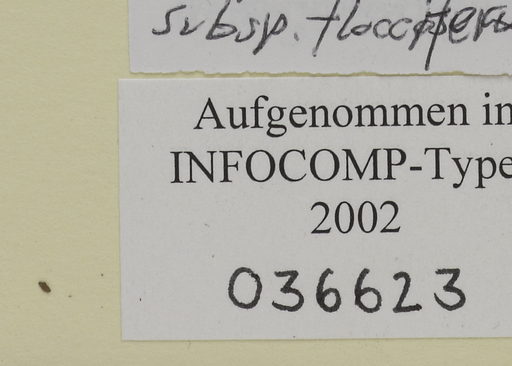 subsp.
Aufgenommen in
INFOCOMP-Type
2002
036623